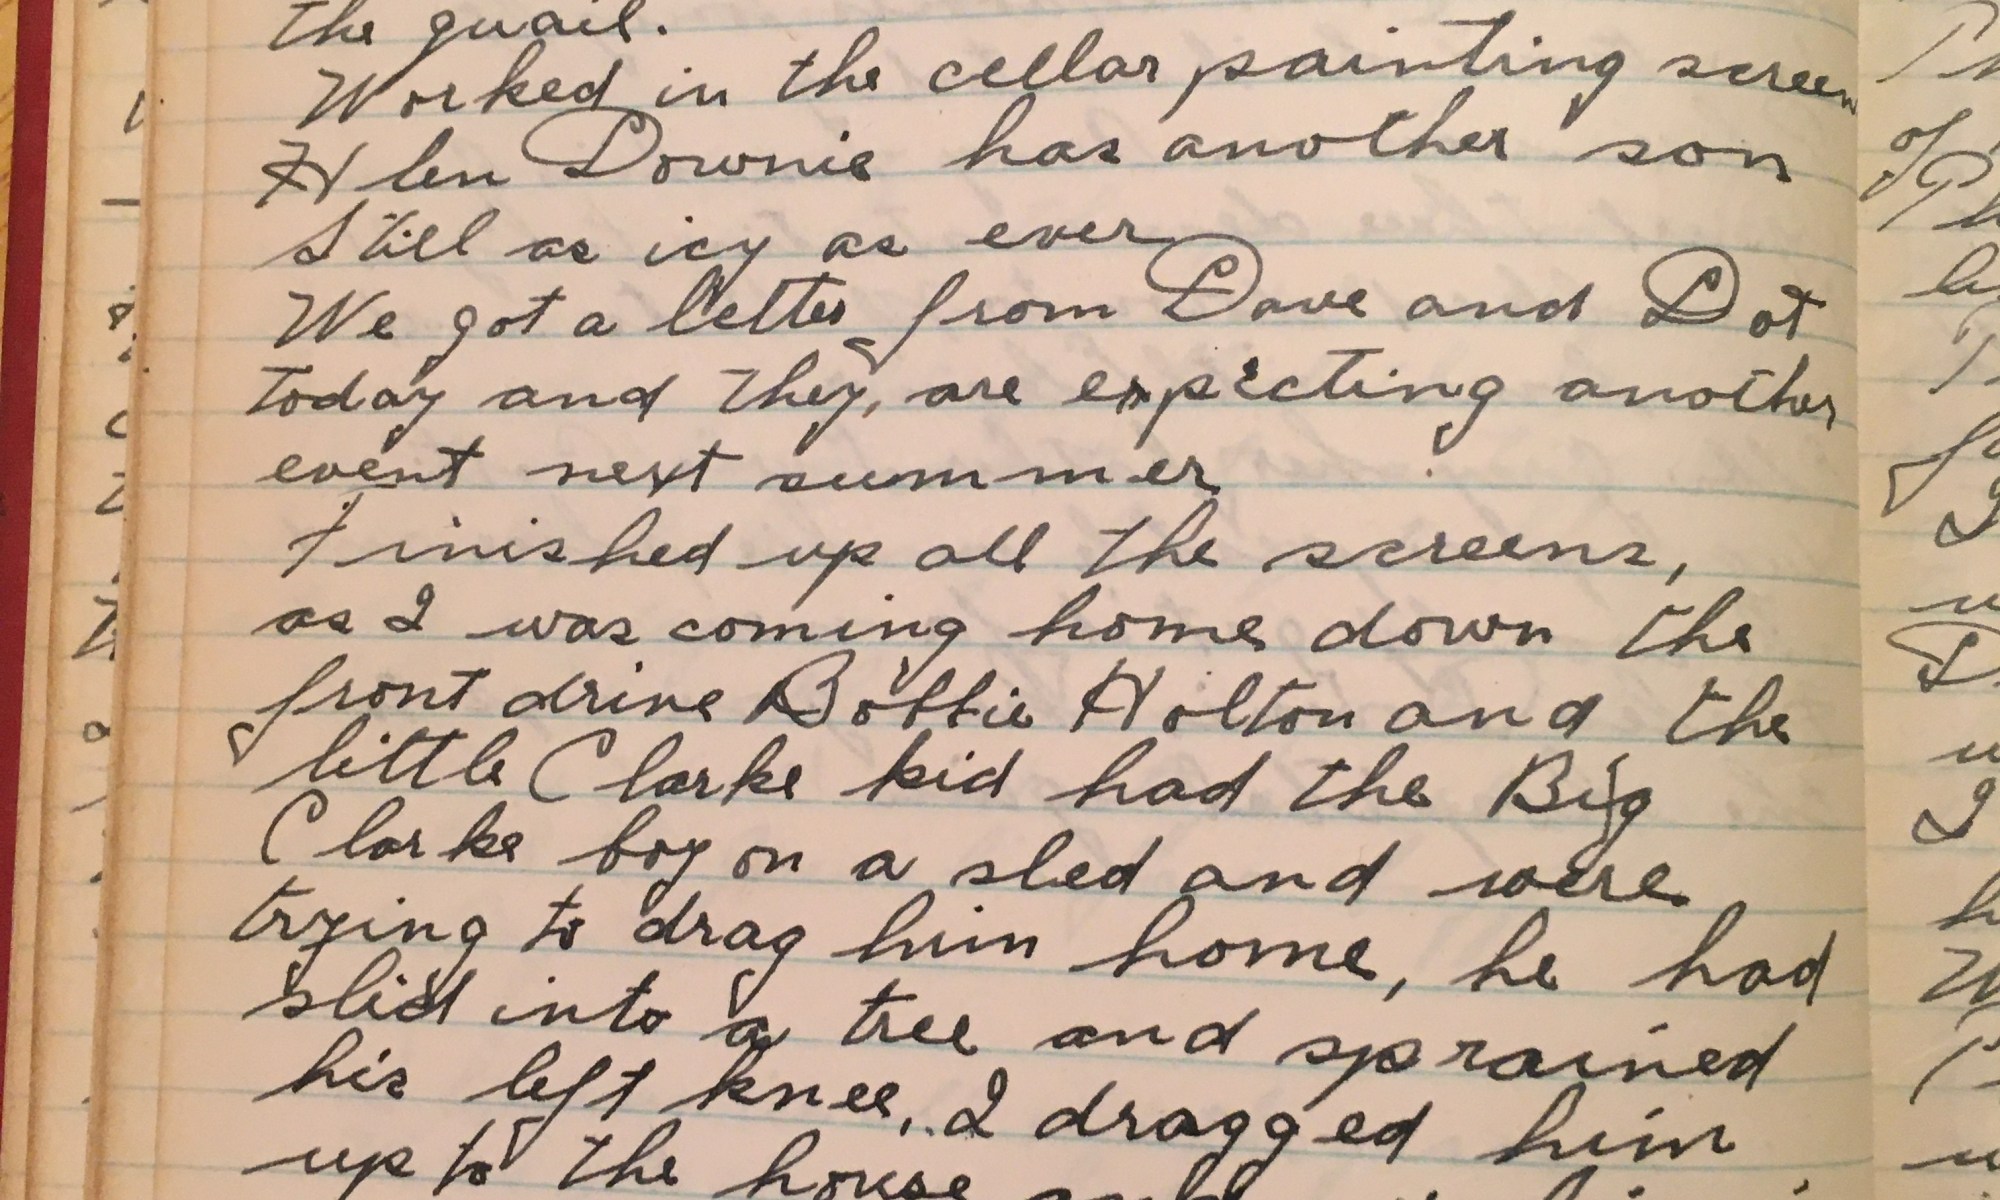 the quail.
Worked in the cellar painting screen
Hlen Downie has another son
Still as icy as ever
We got a letter from Dave and Dot
today and they, are expecting another
event next summer
Finished up all the screens,
as I was coming home down the
front drive Bobbie Holton and the
little Clarke kid had the Big
Clarke boy on a sled and were
trying to drag him home, he had
slid into a tree and sprained
his left knee, I dragged him
up to the house